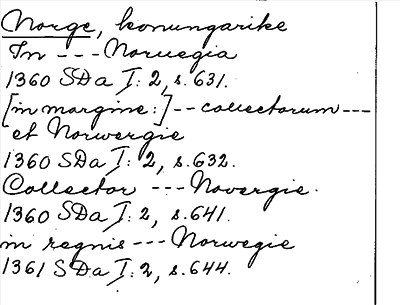 Norge, konungarike
In --- Noruegia
1360 SDa I: 2, s. 631.
[in margine:] -- collectorum ---
et Norwergie
1360 SDa I: 2, s. 632.
Collector --- Novergie.
1360 SDa I: 2, s. 641.
in regnis --- Norwegie
1361 SDa I: 2, s. 644.